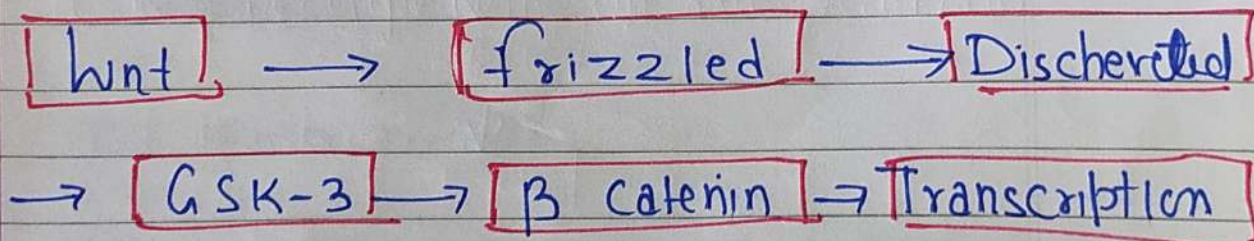 Wnt → frizzled → Discheveled
→ GSK-3 → β Catenin → Transcription